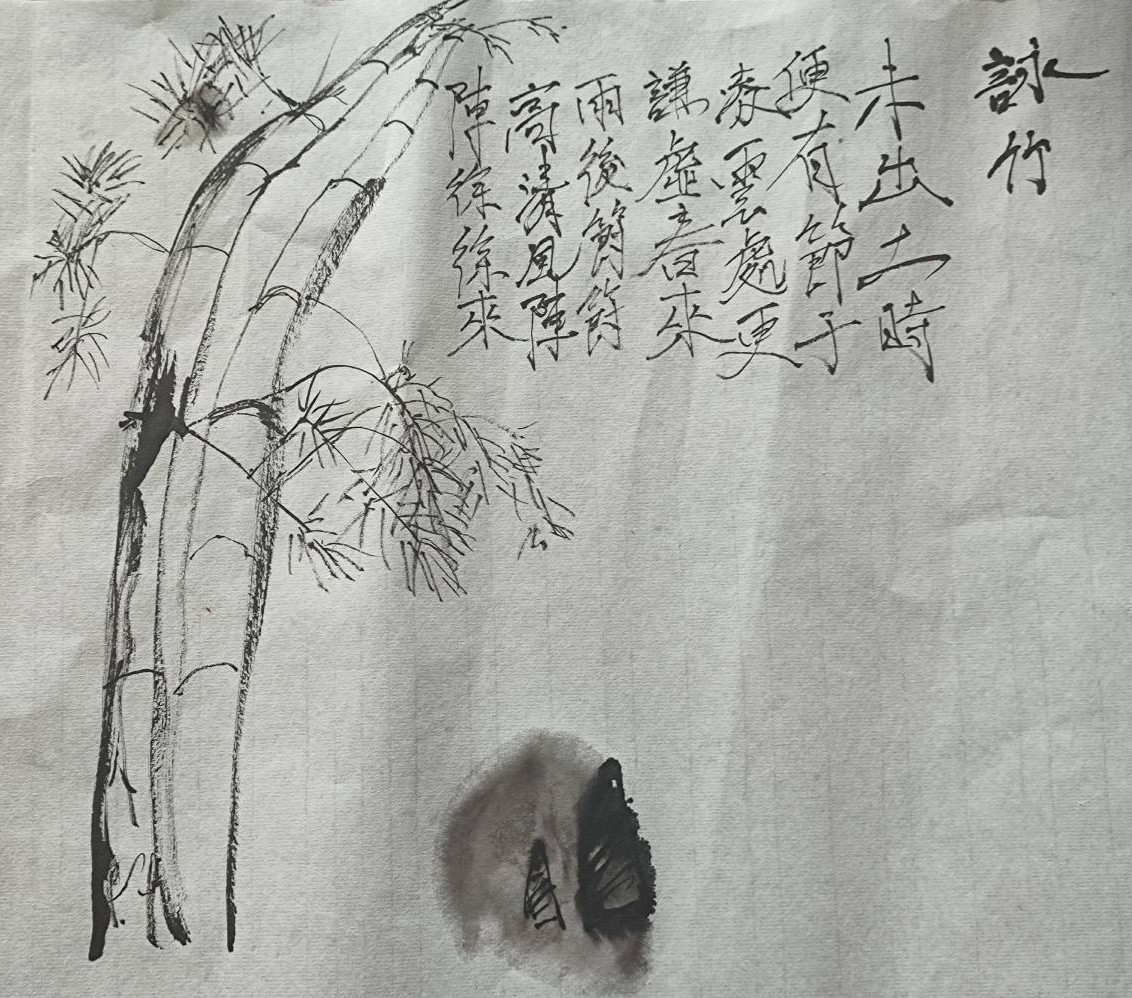 詠竹
未出土時
便有節子
凌雲處更
謙虛春來
雨後節節
高清風陣
陣徐徐來